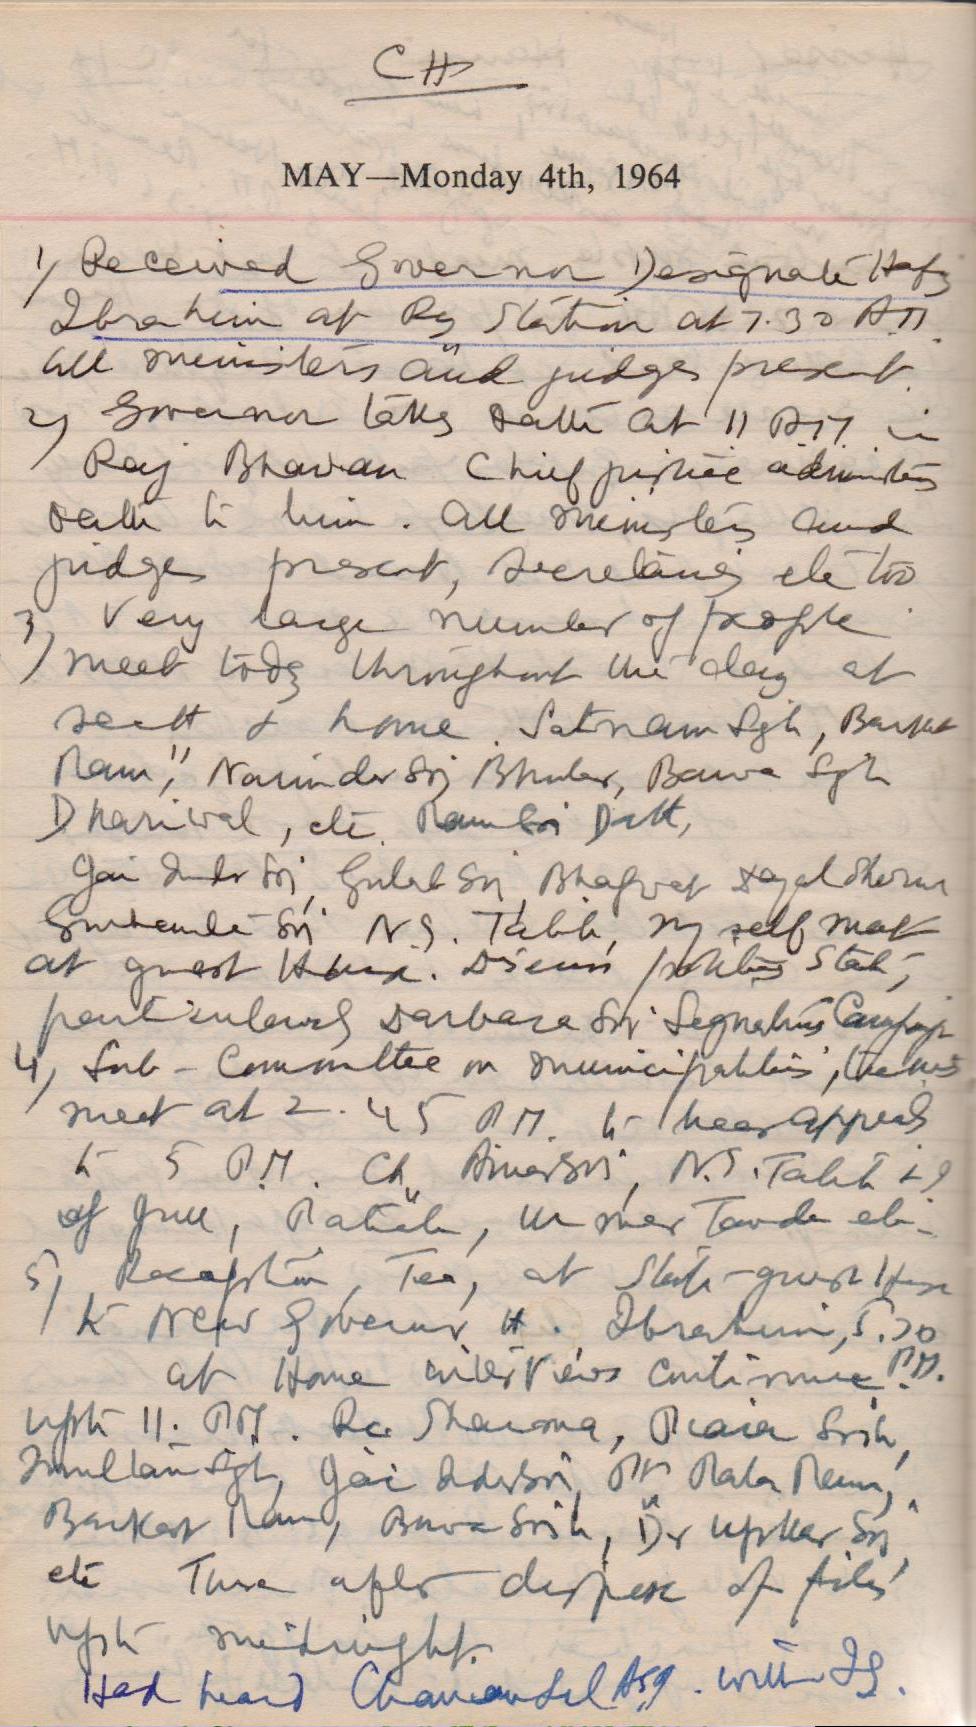 CH
MAY—Monday 4th, 1964
1) Received Governor Designate Hafz
Ibrahim at Ry Station at 7.30 AM.
all ministers and judges present.
2) Governor takes oath at 11 AM in
Raj Bhavan Chief justice administers
oath to him. all ministers and
judges present, secretaries etc too
3) Very large number of people
meet today throughout the day at
sectt & home. Satnam Sgh, Barkat
Ram, Narinder Sgh Bhuler, Bawa Sgh
Dhariwal, etc. Ram Sri Datt,
Jai Inder Sgh, Gulab Sgh, Bhagwat Dayal Sharma
N.S. Talib, myself met
at guest House. Discuss politics State,
particularly Darbara Sgh Signatures Campaign
4) Sub-Committee on municipalities,
meet at 2.45 P.M. to hear appeals
to 5 P.M. Ch. Amar Sgh, N.S. Talib
of , Patiala, Urmar Tanda etc.
5) Reception, Tea, at State guest House
to New Governor H. Ibrahim, 5.30
P.M.
at Home interviews continue
upto 11. PM. Sharma, Piara Sgh,
Multan Sgh, Jai Inder Sgh, Ralla Ram,
Barkat Ram, Bawa Sgh, Dr Upkar Sgh
etc There after dispose of files
upto midnight.
Had heard Chaman Lal . with IG.